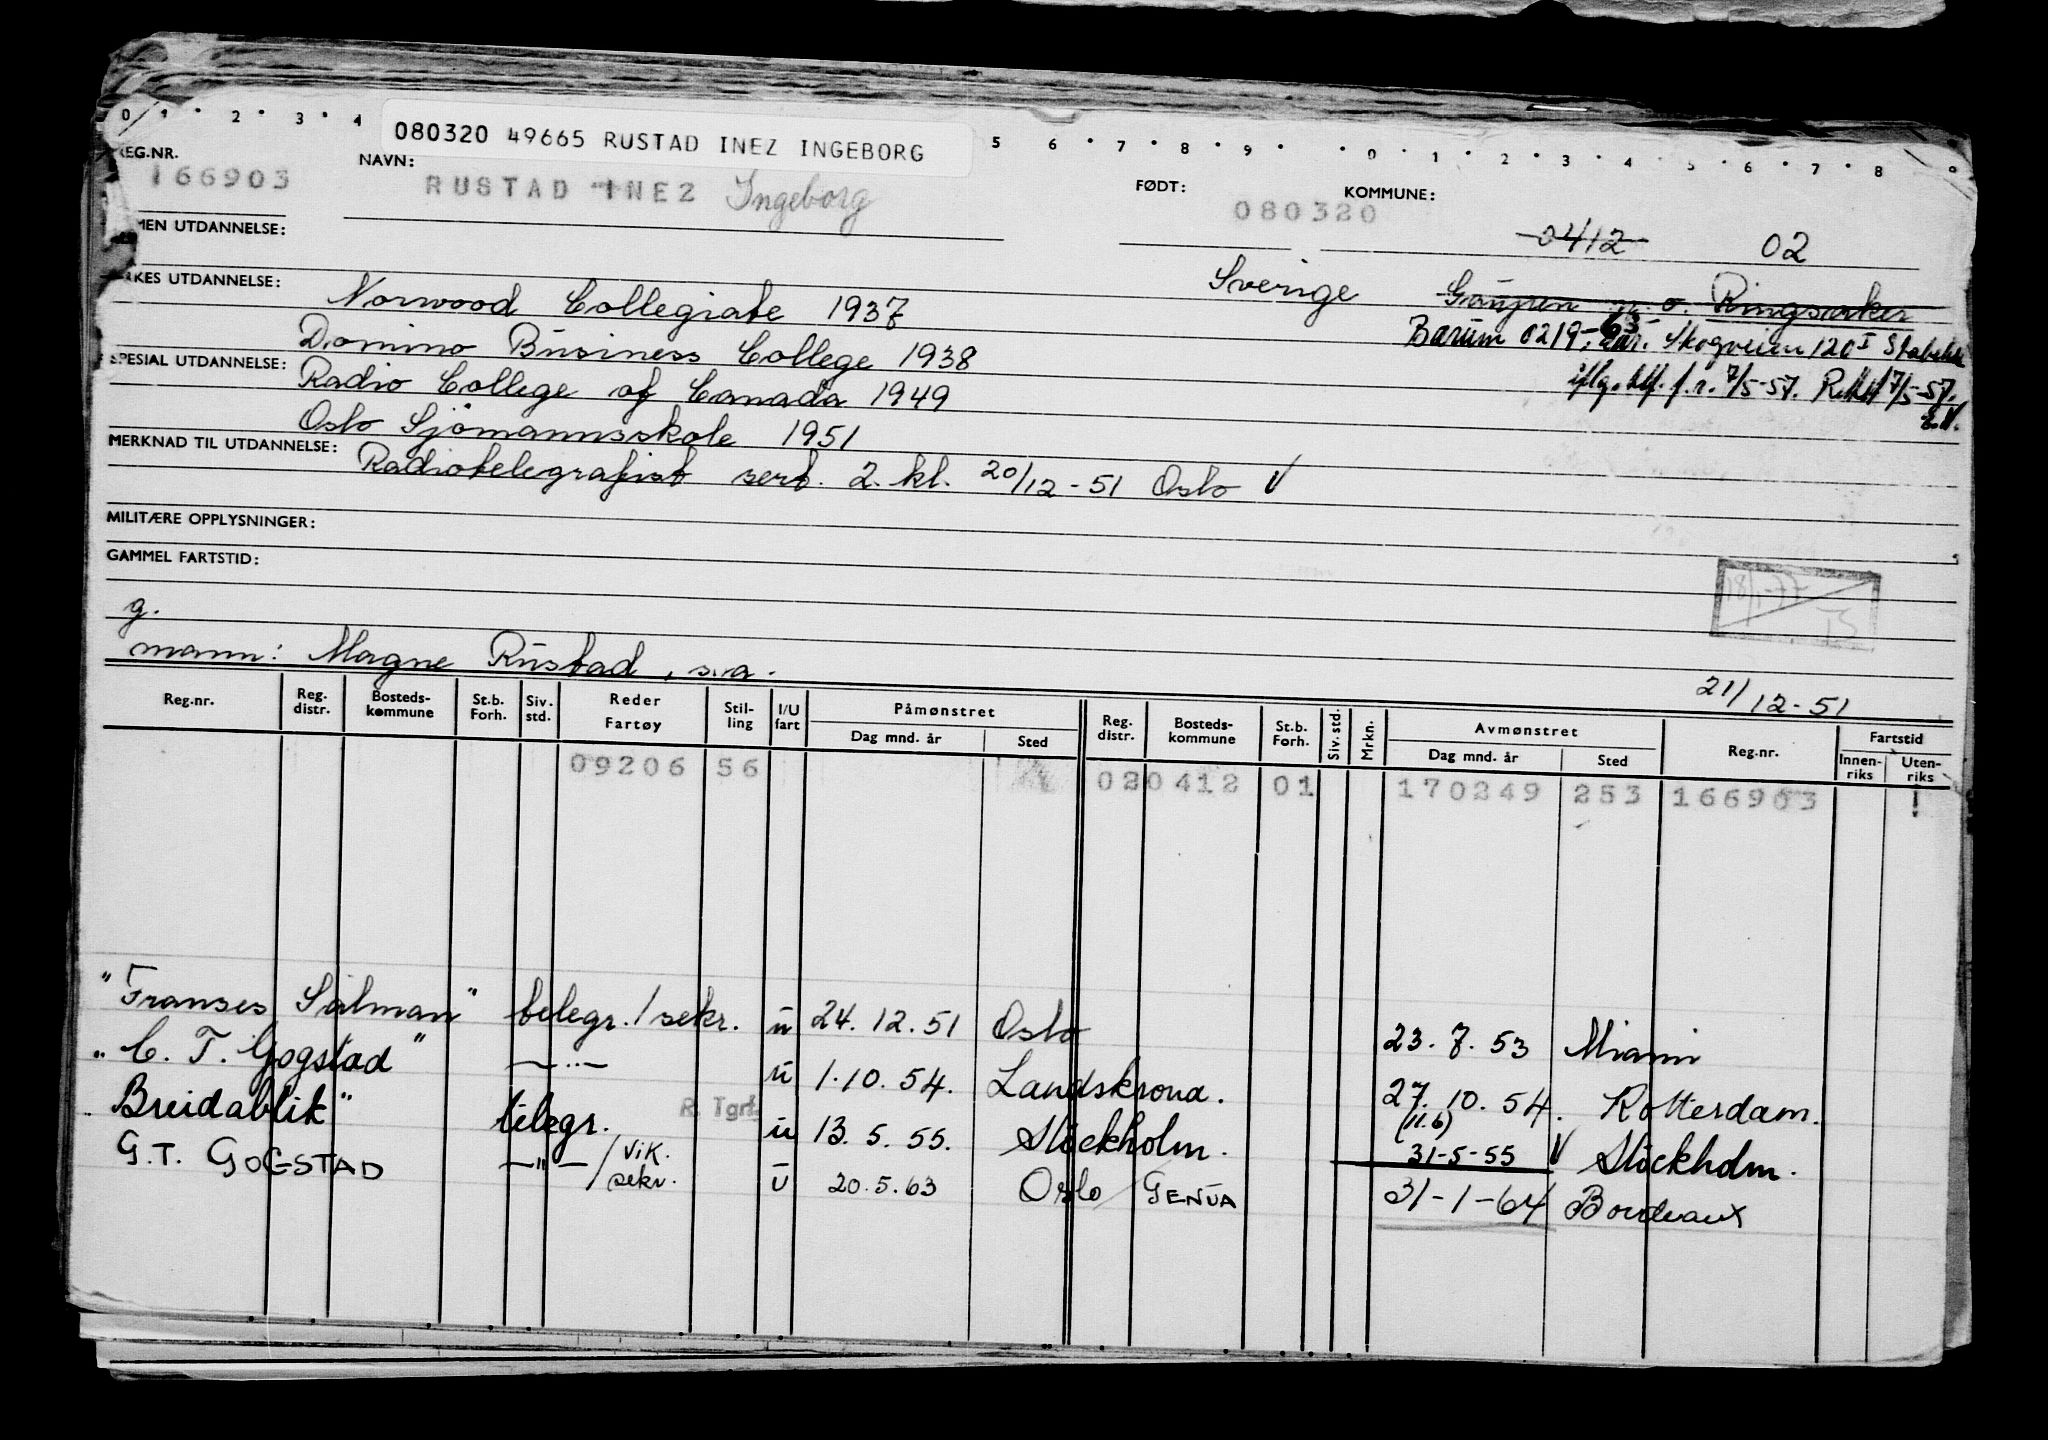 0 1 2 3 4 5 6 7 8 9 0 1 2 3 4 5 6 7 8 9
080320 49665 RUSTAD INEZ INGEBORG
REG.NR. NAVN: FØDT: KOMMUNE:
166903 RUSTAD INEZ Ingeborg 080320
0412 02
MEN UTDANNELSE:
Sverige Gaupen p. o. Ringsaker
KES UTDANNELSE: Norwood Collegiate 1937
Bærum 0219-63 adr. Skogveien 120 I Stabekk
Domino Business College 1938
iflg. blf. f.r. 7/5-57. R. 7/5-57.
SPESIAL UTDANNELSE: Radio College of Canada 1949
E.N.
Oslo Sjömannsskole 1951
MERKNAD TIL UTDANNELSE: Radiotelegrafist sert. 2. kl. 20/12-51 Oslo V
MILITÆRE OPPLYSNINGER:
GAMMEL FARTSTID:
18/1-77
g.
mann: Magne Rustad, s.a.
21/12-51
Reg.nr. Reg. distr. Bosteds-kommune St.b. Forh. Siv. std. Reder Fartøy Stil-ling I/U fart Påmønstret Dag mnd. år Sted Reg. distr. Bosteds-kommune St.b. Forh. Siv. std. Mrkn. Avmønstret Dag mnd. år Sted Reg.nr. Fartstid Innen-riks Uten-riks
09206 56 020412 01 170249 253 166903 !
"Franses Salman" telegr./sekr. u 24.12.51 Oslo 23.7.53 Miami
"C. T. Gogstad" —"— u 1.10.54. Landskrona. 27.10.54. Rotterdam.
(11.6)
"Breidablik" telegr. R. Tgrf. u 13.5.55. Stockholm. 31-5-55 V Stockholm.
G.T. GOGSTAD —"— / Vik. sekr. u 20.5.63 Oslo / GENUA 31-1-64 Bordeaux